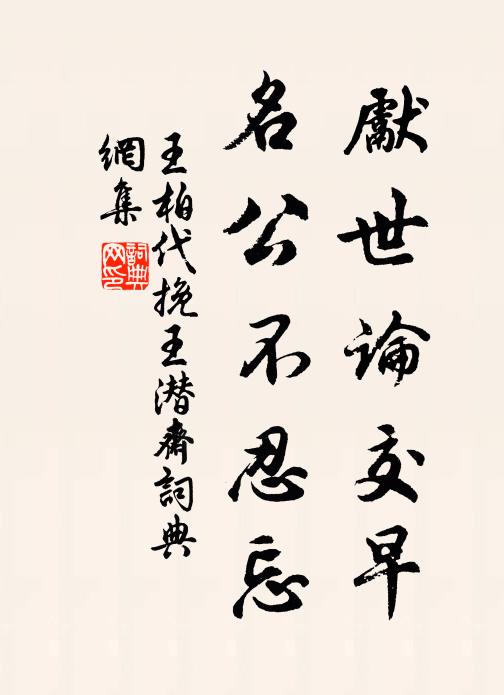 獻世論交早
名公不忍忘
王柏代挽王潜齋詞典
網集
詞典
网印